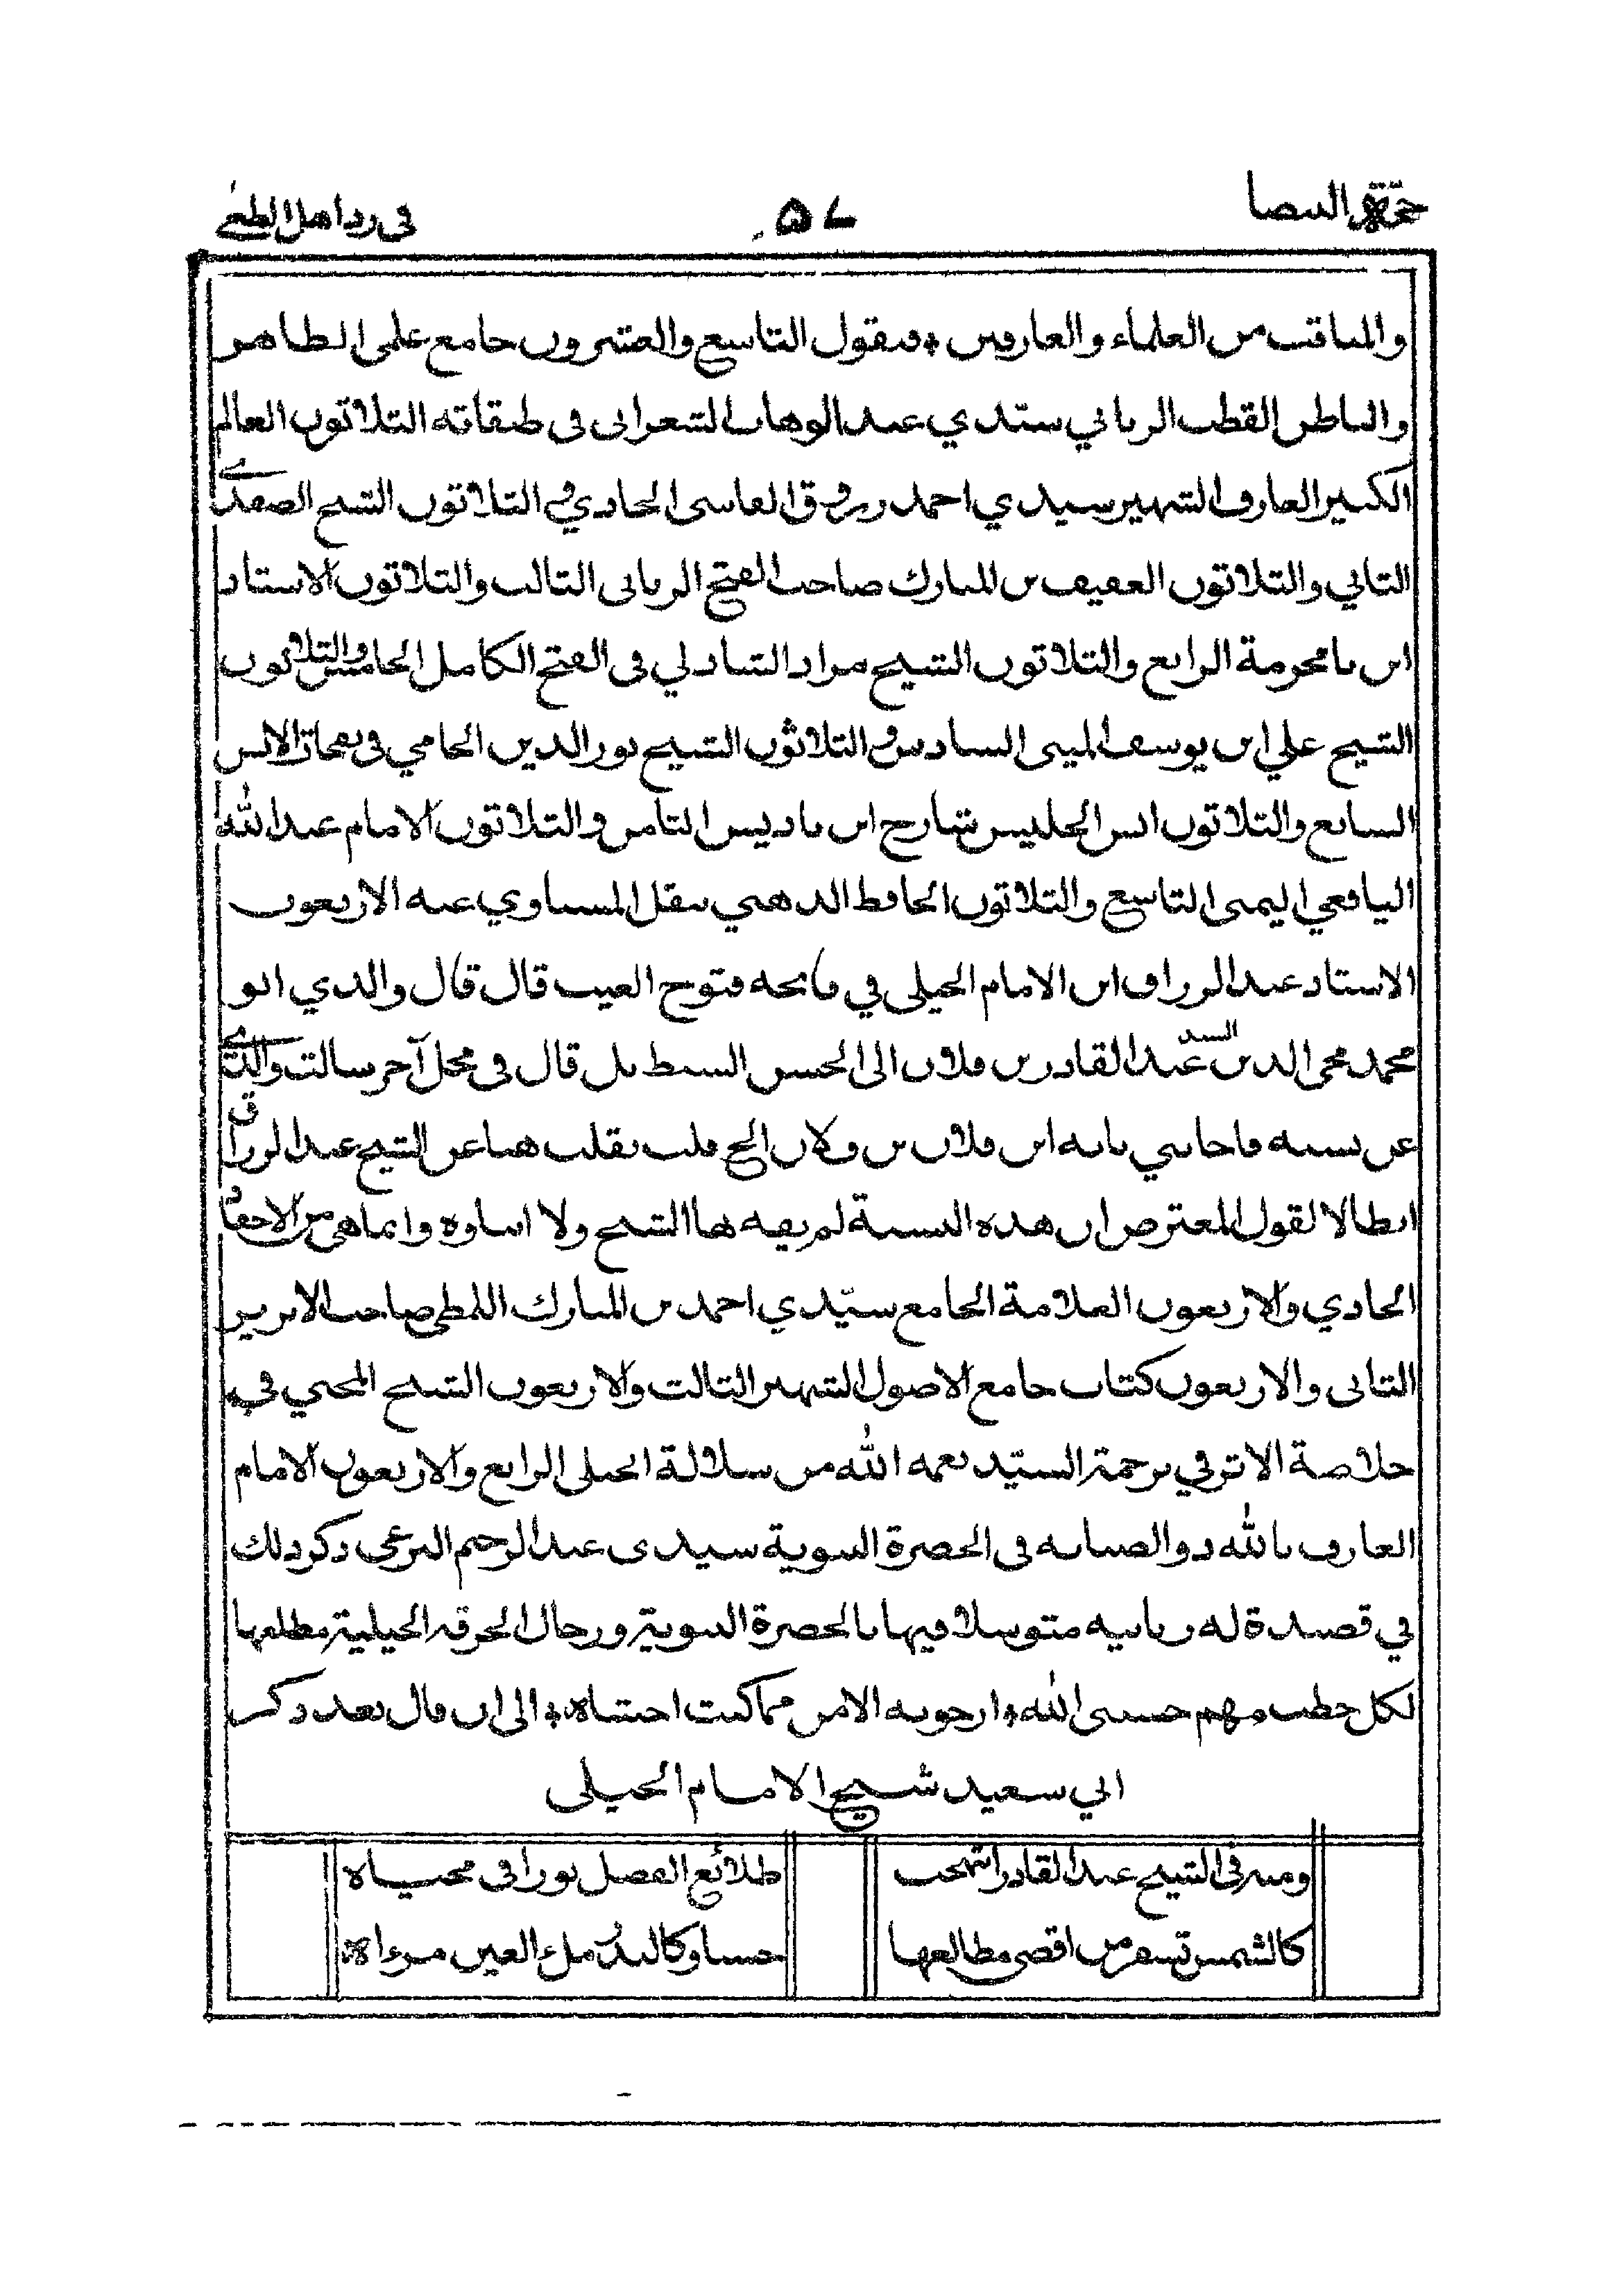 في رد اهل الطغى ٥٧
والمناقب من العلماء والعارفين * فنقول التاسع والعشرون جامع علمي الظاهر
والباطن القطب الرباني سيّدي عبد الوهاب الشعراني في طبقاته الثلاثون العالم
الكبير العارف الشهير سيدي احمد زروق الفاسي الحادي والثلاثون الشيخ الصفدي
الثاني والثلاثون العفيف بن المبارك صاحب الفتح الرباني الثالث والثلاثون الاستاذ
ابن بامخرمة الرابع والثلاثون الشيخ مراد الشاذلي في الفتح الكامل الخامس والثلاثون
الشيخ علي ابن يوسف السادس والثلاثون الشيخ نور الدين الجامي في نفحات الانس
السابع والثلاثون انس الجليس شارح ابن باديس الثامن والثلاثون الامام عبد الله
اليافعي اليمني التاسع والثلاثون الحافظ الذهبي بنقل المسناوي عنه الاربعون
الاستاذ عبد الرزاق ابن الامام الجيلي في فاتحة فتوح الغيب قال قال والدي ابو
محمد محي الدين السيد عبد القادر بن فلان الى الحسن السبط بل قال في محل آخر سالت والدي
عن نسبه فاجابني بانه ابن فلان بن فلان الخ قلت نقلت هنا عن الشيخ عبد الرزاق
ابطالا لقول المعترض ان هذه النسبة لم يفه بها الشيخ ولا ابناوه وانما هي من الاحفاد
الحادي والاربعون العلامة الجامع سيّدي احمد بن المبارك اللمطي صاحب الابريز
الثاني والاربعون كتاب جامع الاصول الشهير الثالث والاربعون الشيخ المحبي في
خلاصة الاثر في ترجمة السيّد نعمه الله من سلالة الجيلي الرابع والاربعون الامام
العارف بالله ذو الصبابه في الحضرة النبوية سيدى عبد الرحيم البرعي ذكر ذلك
في قصيدة له ربانيه متوسلا فيها بالحضرة النبوية ورجال الخرقة الجيلية مطلعها
لكل خطب مهم حسبي الله * ارجو به الامن مما كنت اخشاه * الى ان قال بعد ذكر
ابي سعيد شيخ الامام الجيلي
ومنه في الشيخ عبد القادر اتضحت طلائع الفضل نورا في محياه
كالشمس تسفر من اقصى مطالعها حسنا وكالبدر ملء العين مرءاه